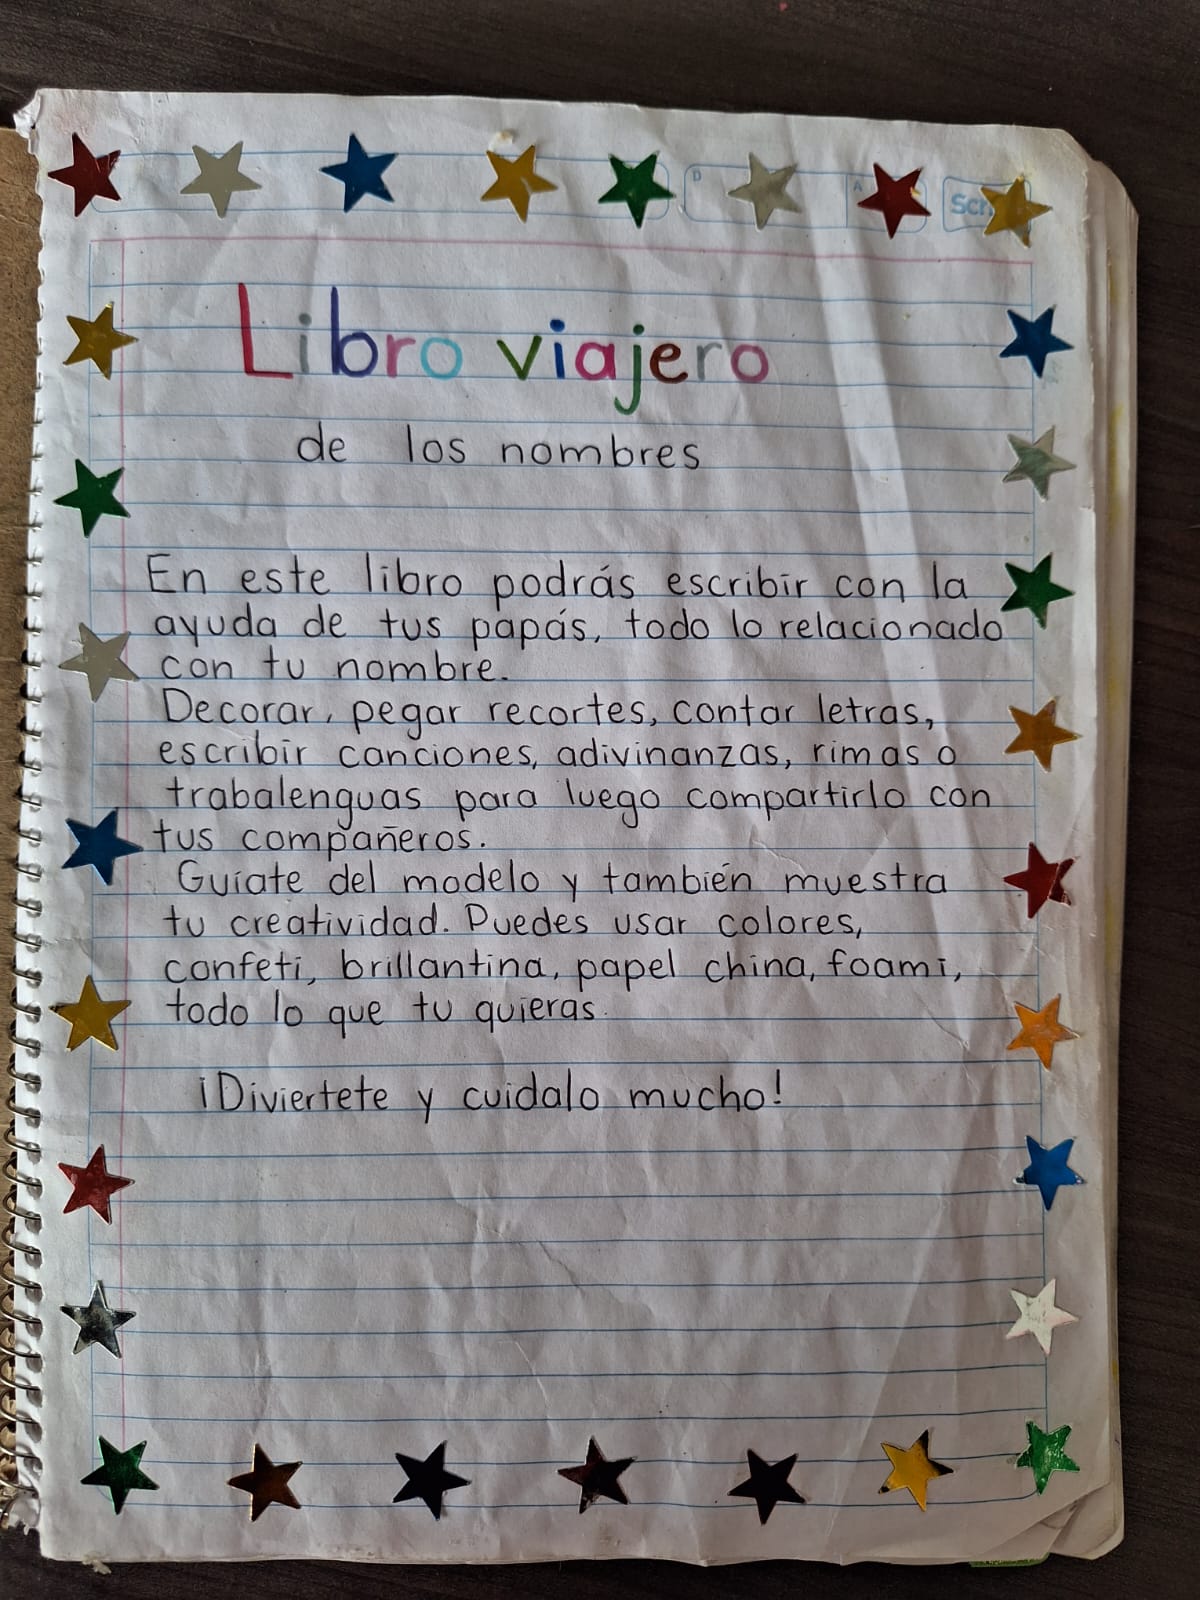 D
A
Libro viajero
de los nombres
En este libro podrás escribir con la
ayuda de tus papás, todo lo relacionado
con tu nombre.
Decorar, pegar recortes, contar letras,
escribir canciones, adivinanzas, rimas o
trabalenguas para luego compartirlo con
tus compañeros.
Guíate del modelo y también muestra
tu creatividad. Puedes usar colores,
confeti, brillantina, papel china, foami,
todo lo que tu quieras.
¡Diviertete y cuidalo mucho!